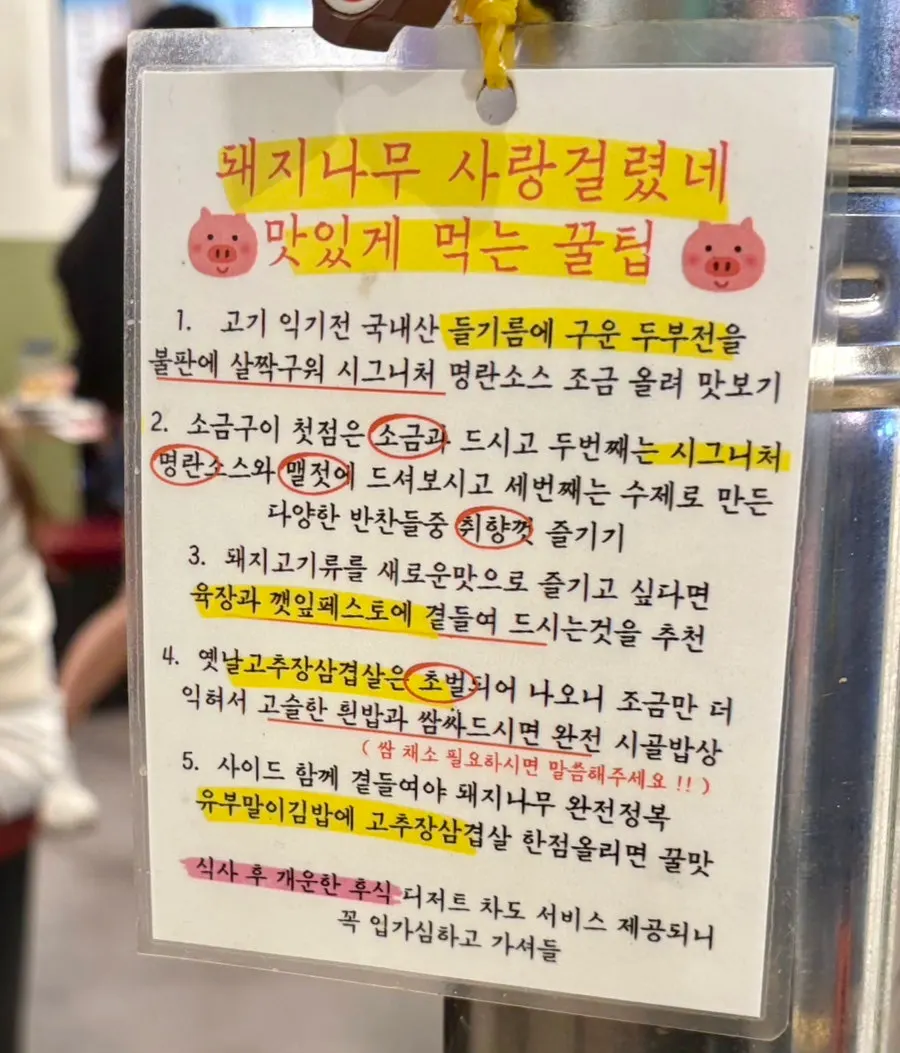 돼지나무 사랑걸렸네
맛있게 먹는 꿀팁
1. 고기 익기전 국내산 들기름에 구운 두부전을
불판에 살짝구워 시그니처 명란소스 조금 올려 맛보기
2. 소금구이 첫점은 소금과 드시고 두번째는 시그니처
명란소스와 맬젓에 드셔보시고 세번째는 수제로 만든
다양한 반찬들중 취향껏 즐기기
3. 돼지고기류를 새로운맛으로 즐기고 싶다면
육장과 깻잎페스토에 곁들여 드시는것을 추천
4. 옛날고추장삼겹살은 초벌되어 나오니 조금만 더
익혀서 고슬한 흰밥과 쌈싸드시면 완전 시골밥상
( 쌈 채소 필요하시면 말씀해주세요 !! )
5. 사이드 함께 곁들여야 돼지나무 완전정복
유부말이김밥에 고추장삼겹살 한점올리면 꿀맛
식사 후 개운한 후식 디저트 차도 서비스 제공되니
꼭 입가심하고 가셔들